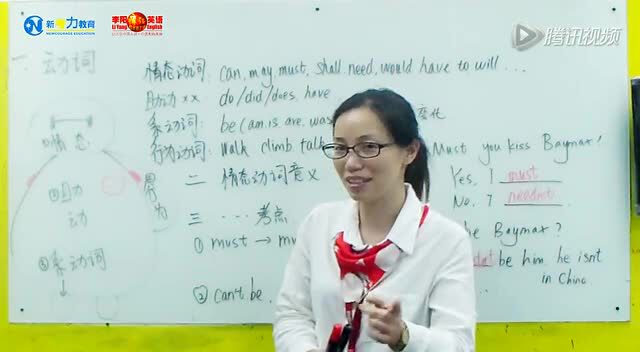 新勇力教育
NEWCOURAGE EDUCATION
李阳 英语
Li Yang English
腾讯视频
一 动词
情态动词: can, may, must, shall, need, would have to will ...
助动 xx do/did/does, have
系动词: be (am, is are, was
变化
行为动词: walk climb talk
①情态
②助力
动
③系动词
男
为
二 情态动词意义
三 .... 考点
① must → mu
② can't be
Must you kiss Baymax?
Yes, I must
No, I needn't
he Baymax?
be him he isn't
in China